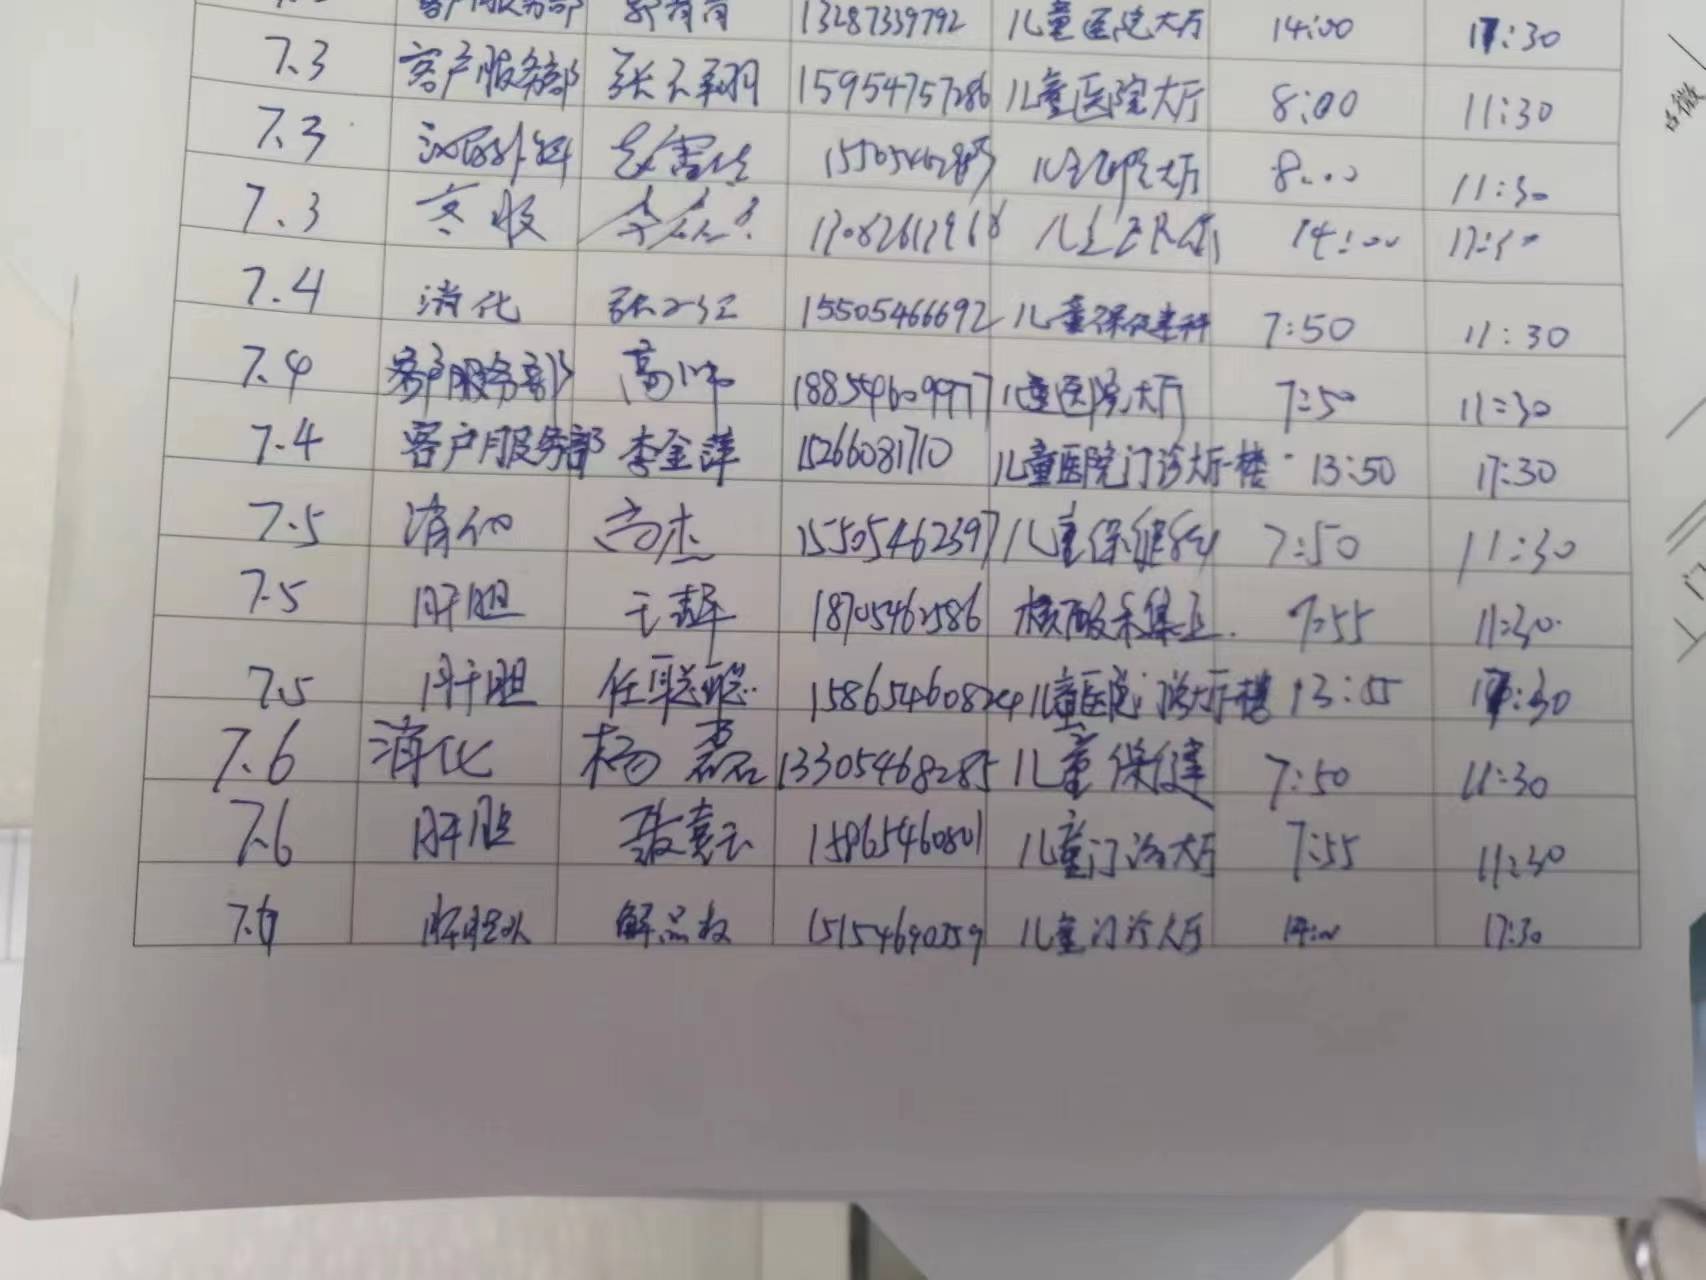 客户服务部 13287339792 儿童医院大厅 14:00 17:30
7.3 客户服务部 张天翔 15954757286 儿童医院大厅 8:00 11:30
7.3 泌尿外科 儿童医院大厅 8:00 11:30
7.3 14:00 17:30
7.4 消化 15505466692 儿童保健科 7:50 11:30
7.4 客户服务部 高帅 18854609977 儿童医院大厅 7:50 11:30
7.4 客户服务部 李金萍 15266081710 儿童医院门诊大厅一楼 13:50 17:30
7.5 消化 高杰 15505462397 儿童保健科 7:50 11:30
7.5 肝胆 18705462586 核酸采集点 7:55 11:30
7.5 肝胆 任聪聪 15865460824 儿童医院门诊大厅一楼 13:55 17:30
7.6 消化 杨磊 13305468285 儿童保健 7:50 11:30
7.6 肝胆 15865460801 儿童门诊大厅 7:55 11:30
7.6 肝胆 15154690259 儿童门诊大厅 14:00 17:30